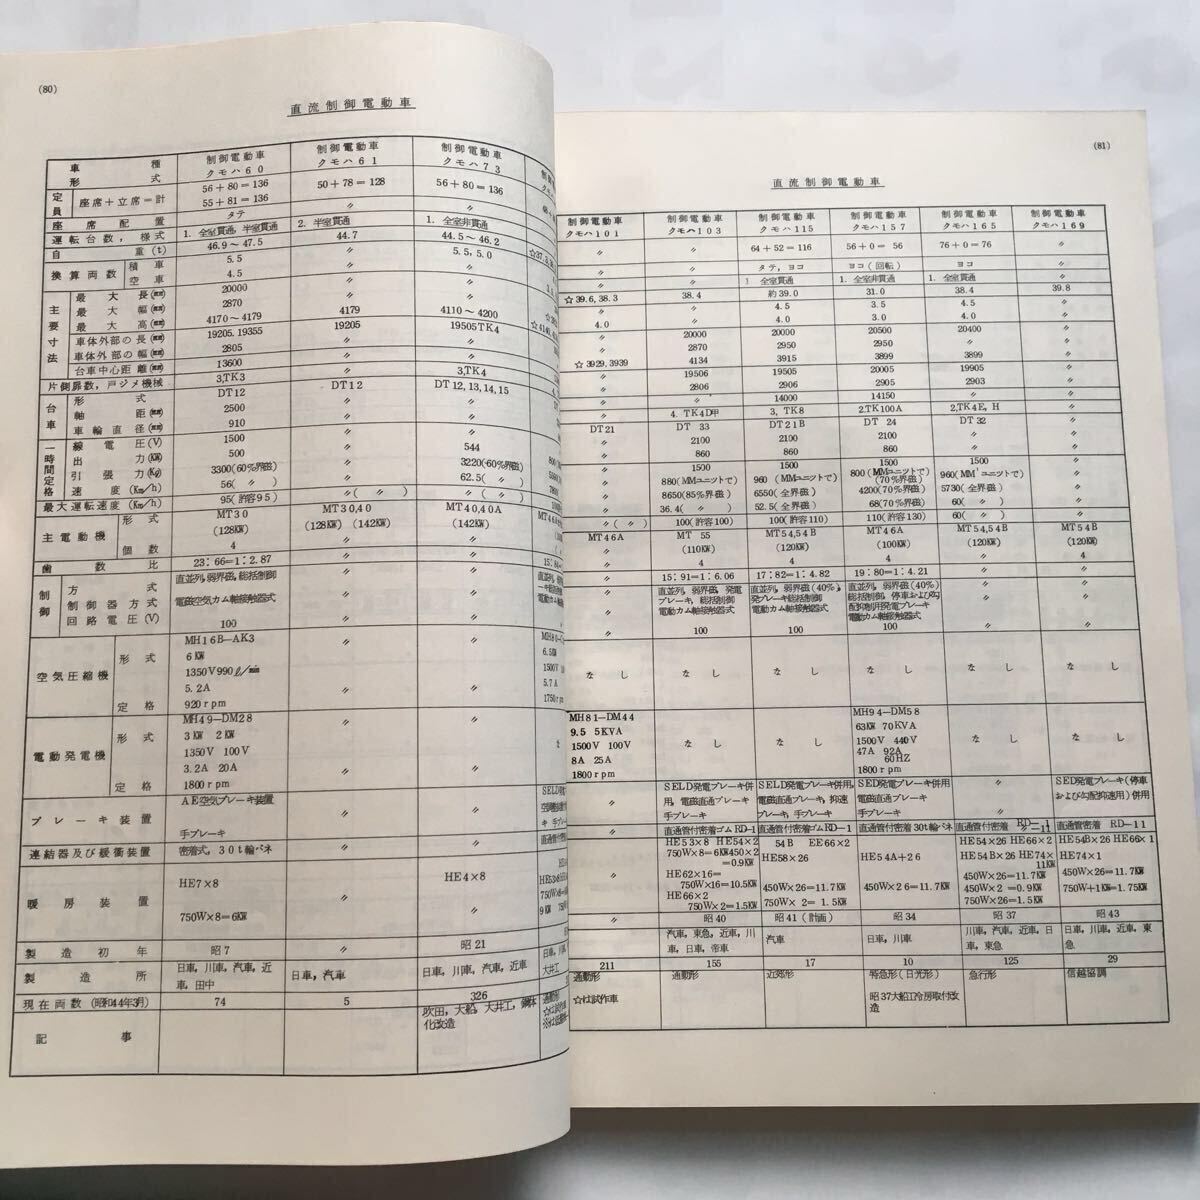 (80)
直流制御電動車
車 種 制御電動車 制御電動車 制御電動車
形 式 クモハ60 クモハ61 クモハ73
定員 座席+立席=計 56+80=136 50+78=128 56+80=136
55+81=136 〃 〃
座 席 配 置 タテ 〃 〃
運転台数, 様式 1. 全室貫通, 半室貫通 2. 半室貫通 1. 全室非貫通
自 重(t) 46.9~47.5 44.7 44.5~46.2
換算両数 積車 5.5 〃 5.5, 5.0
空車 4.5 〃 〃
主要寸法 最大長(㎜) 20000 〃 〃
最大幅(㎜) 2870 〃 〃
最大高(㎜) 4170~4179 4179 4110~4200
車体外部の長(㎜) 19205.19355 19205 19505TK4
車体外部の幅(㎜) 2805 〃 〃
台車中心距離(㎜) 13600 〃 〃
片側扉数, 戸ジメ機械 3,TK3 〃 3,TK4
台車 形式 DT12 DT12 DT12, 13, 14, 15
軸距(㎜) 2500 〃 〃
車輪直径(㎜) 910 〃 〃
一時間定格 線電圧(V) 1500 〃 〃
出力(KW) 500 〃 544
引張力(Kg) 3300(60%界磁) 〃 3220(60%界磁)
速度(Km/h) 56(〃) 〃 62.5(〃)
最大運転速度(Km/h) 95(許容95) 〃(〃) 〃(〃)
主電動機 形式 MT30 MT30,40 MT40,40A
(128KW) (128KW) (142KW) (142KW)
個数 4 〃 〃
歯 数 比 23:66=1:2.87 〃 〃
制御 方式 直並列, 弱界磁, 総括制御 〃 〃
制御器方式 電磁空気カム軸接触器式 〃 〃
回路電圧(V) 100 〃 〃
空気圧縮機 形式 MH16B-AK3
6KW
1350V990ℓ/min
5.2A
定格 920rpm
電動発電機 形式 MH49-DM28
3KW 2KW
1350V 100V
3.2A 20A
定格 1800rpm
ブレーキ装置 AE空気ブレーキ装置
手ブレーキ
連結器及び緩衝装置 密着式, 30t輪バネ 〃 〃
暖房装置 HE7×8 〃 HE4×8
750W×8=6KW 〃 〃
製造初年 昭7 〃 昭21
製造所 日車, 川車, 汽車, 近車, 田中 日車, 汽車 日車, 川車, 汽車, 近車
現在両数(昭和44年3月) 74 5 326
記 事 吹田, 大船, 大井工, 鋼体化改造
(81)
直流制御電動車
制御電動車 制御電動車 制御電動車 制御電動車 制御電動車 制御電動車
クモハ101 クモハ103 クモハ115 クモハ157 クモハ165 クモハ169
〃 〃 64+52=116 56+0=56 76+0=76 〃
〃 〃 タテ,ヨコ ヨコ(回転) ヨコ 〃
〃 〃 1 全室貫通 1. 全室非貫通 1. 全室貫通 〃
☆39.6,38.3 38.4 約39.0 31.0 38.4 39.8
〃 〃 4.5 3.5 4.5 〃
4.0 〃 4.0 3.0 4.0 〃
〃 20000 20000 20500 20400 〃
〃 2870 2950 2950 〃 〃
☆3929,3939 4134 3915 3899 3899 〃
〃 19506 19505 20005 19905 〃
〃 2806 2906 2905 2903 〃
〃 〃 14000 14150 〃 〃
〃 4. TK4D甲 3, TK8 2,TK100A 2,TK4E, H 〃
DT21 DT 33 DT21B DT 24 DT 32 〃
〃 2100 2100 2100 〃 〃
〃 860 860 860 〃 〃
〃 1500 1500 1500 1500 〃
〃 880(MMユニットで) 960(MMユニットで) 800(MMユニットで)(70%界磁) 960(MM'ユニットで) 〃
〃 8650(85%界磁) 6550(全界磁) 4200(70%界磁) 5730(全界磁) 〃
〃 36.4(〃) 52.5(全界磁) 68(70%界磁) 60(〃) 〃
〃(〃) 100(許容100) 100(許容110) 110(許容130) 60(〃) 〃
MT46A MT 55 MT54,54B MT46A MT54,54B MT54B
(110KW) (120KW) (100KW) (120KW) (120KW)
〃 4 4 4 〃 4
〃 15:91=1:6.06 17:82=1:4.82 19:80=1:4.21 〃 〃
直並列, 弱界磁, 発電ブレーキ, 総括制御
電動カム軸接触器式
直並列, 弱界磁(40%), 発ブレーキ総括制御
電動カム軸接触器式
直並列, 弱界磁(40%)
総括制御, 停車および勾配抑制用発電ブレーキ
電動カム軸接触器式
〃 100 100 100 〃 〃
なし なし なし なし なし なし
MH81-DM44
9.5 5KVA
1500V 100V
8A 25A
1800rpm
なし なし
MH94-DM58
63KW 70KVA
1500V 440V
47A 92A
60HZ
1800rpm
なし なし
SELD発電ブレーキ併用, 電磁直通ブレーキ
手ブレーキ
SELD発電ブレーキ併用, 電磁直通ブレーキ, 抑速ブレーキ, 手ブレーキ
SED発電ブレーキ併用
電磁直通ブレーキ
手ブレーキ
〃
SED発電ブレーキ(停車および勾配抑速用)併用
〃 直通管付密着ゴムRD-1 直通管付密着ゴムRD-1 直通管付密着30t輪バネ 直通管付密着 RD-11 直通管密着 RD-11
HE53×8 HE54×2
750W×8=6KW450×2
=0.9KW
HE62×16=
750W×16=10.5KW
HE66×2
750W×2=1.5KW
54B EE66×2
HE58×26
450W×26=11.7KW
750W×2=1.5KW
HE54A+26
450W×26=11.7KW
HE54×26 HE66×2
HE54B×26 HE74×
11KW
450W×26=11.7KW
450W×2=0.9KW
750W×26=1.5KW
HE54B×26 HE66×1
HE74×1
450W×26=11.7KW
750W+1KW=1.75KW
〃 昭40 昭41(計画) 昭34 昭37 昭43
汽車, 東急, 近車, 川車, 日車, 帝車 汽車 日車, 川車 川車, 汽車, 近車, 日車, 東急 日車, 川車, 近車, 東急
211 155 17 10 125 29
通勤形 通勤形 近郊形 特急形(日光形) 急行形 信越協調
☆は試作車 昭37大船工冷房取付改造